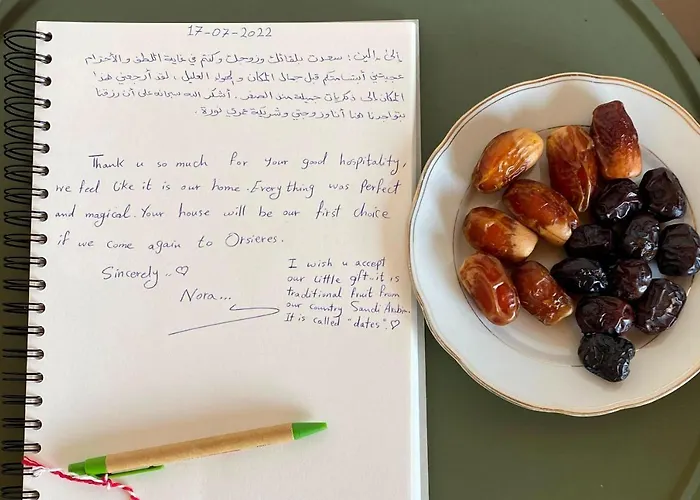 17-07-2022
إلى إلين : سعدت بلقائك وزوجك وكنتم في غاية اللطف والأحترام
أبتسامتكم قبل جمال المكان و الهواء العليل ، لقد أرجعني هذا
المكان إلى ذكريات جميلة منذ الصغر . أشكر الله سبحانه على أن رزقنا
بتواجدنا هنا أنا وزوجتي وشريكة عمري نورة .
Thank u so much for your good hospitality,
we feel like it is our home. Everything was perfect
and magical. Your house will be our first choice
if we come again to Orsieres.
Sincerely .. ♡
Nora...
I wish u accept
our little gift it is
traditional fruit from
our country Saudi Arabia.
It is called "dates". ♡